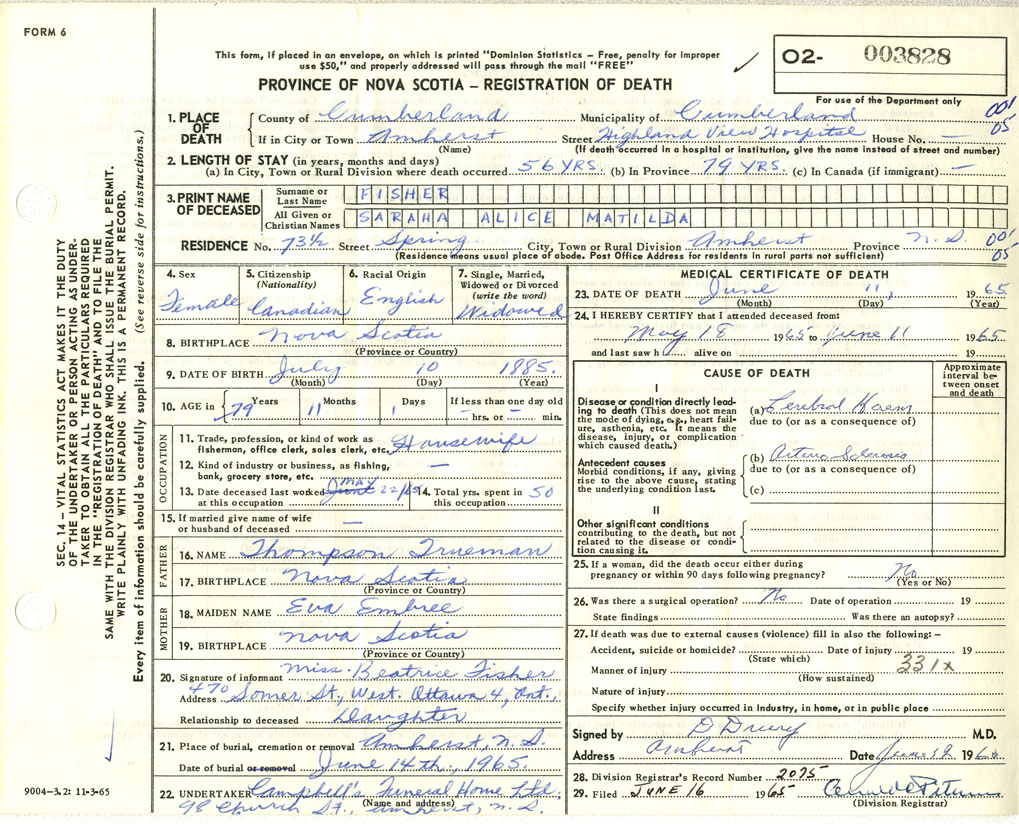 FORM 6
This form, if placed in an envelope, on which is printed "Dominion Statistics - Free, penalty for improper
use $50," and properly addressed will pass through the mail "FREE"
PROVINCE OF NOVA SCOTIA - REGISTRATION OF DEATH
O2- 003828
For use of the Department only
SEC. 14 - VITAL STATISTICS ACT MAKES IT THE DUTY
OF THE UNDERTAKER OR PERSON ACTING AS UNDER-
TAKER TO OBTAIN ALL THE PARTICULARS REQUIRED
IN THE "REGISTRATION OF DEATH" AND TO FILE THE
SAME WITH THE DIVISION REGISTRAR WHO SHALL ISSUE THE BURIAL PERMIT.
WRITE PLAINLY WITH UNFADING INK. THIS IS A PERMANENT RECORD.
Every item of information should be carefully supplied. (See reverse side for instructions.)
1. PLACE OF DEATH
County of Cumberland Municipality of Cumberland 001
If in City or Town Amherst Street Highland View Hospital House No. — 05
(Name) (If death occurred in a hospital or institution, give the name instead of street and number)
2. LENGTH OF STAY (in years, months and days)
(a) In City, Town or Rural Division where death occurred 56 YRS. (b) In Province 79 YRS. (c) In Canada (if immigrant) —
3. PRINT NAME OF DECEASED
Surname or Last Name FISHER
All Given or Christian Names SARAHA ALICE MATILDA
RESIDENCE No. 73½ Street Spring City, Town or Rural Division Amherst Province N.S. 001 05
(Residence means usual place of abode. Post Office Address for residents in rural parts not sufficient)
4. Sex Female
5. Citizenship (Nationality) Canadian
6. Racial Origin English
7. Single, Married, Widowed or Divorced (write the word) Widowed
8. BIRTHPLACE Nova Scotia
(Province or Country)
9. DATE OF BIRTH July 10 1885.
(Month) (Day) (Year)
10. AGE in 79 Years 11 Months 1 Days If less than one day old
— hrs. or — min.
OCCUPATION
11. Trade, profession, or kind of work as
fisherman, office clerk, sales clerk, etc. Housewife
12. Kind of industry or business, as fishing,
bank, grocery store, etc. —
13. Date deceased last worked June MAY 22/65
at this occupation
14. Total yrs. spent in
this occupation 50
15. If married give name of wife
or husband of deceased —
FATHER
16. NAME Thompson Trueman
17. BIRTHPLACE Nova Scotia
(Province or Country)
MOTHER
18. MAIDEN NAME Eva Embree
19. BIRTHPLACE Nova Scotia
(Province or Country)
20. Signature of informant Miss. Beatrice Fisher
Address 470 Somer St., West. Ottawa 4, Ont.,
Relationship to deceased Daughter
21. Place of burial, cremation or removal Amherst, N.S.
Date of burial or removal June 14th., 1965.
22. UNDERTAKER Campbell's Funeral Home Ltd.
(Name and address)
98 Church St., Amherst, N.S.
9004-3.2: 11-3-65
MEDICAL CERTIFICATE OF DEATH
23. DATE OF DEATH June 11, 1965
(Month) (Day) (Year)
24. I HEREBY CERTIFY that I attended deceased from:
May 18 1965 to June 11 1965
and last saw h alive on 19
CAUSE OF DEATH
Approximate interval between onset and death
I
Disease or condition directly lead-
ing to death (This does not mean
the mode of dying, e.g., heart fail-
ure, asthenia, etc. It means the
disease, injury, or complication
which caused death.)
(a) Cerebral Haem
due to (or as a consequence of)
Antecedent causes
Morbid conditions, if any, giving
rise to the above cause, stating
the underlying condition last.
(b) Arterio Sclerosis
due to (or as a consequence of)
(c)
II
Other significant conditions
contributing to the death, but not
related to the disease or condi-
tion causing it.
25. If a woman, did the death occur either during
pregnancy or within 90 days following pregnancy? No
(Yes or No)
26. Was there a surgical operation? No Date of operation 19
State findings Was there an autopsy?
27. If death was due to external causes (violence) fill in also the following: -
Accident, suicide or homicide? Date of injury 19
(State which)
Manner of injury 331x
(How sustained)
Nature of injury
Specify whether injury occurred in industry, in home, or in public place
Signed by D Drury M.D.
Address Amherst Date June 12 196
28. Division Registrar's Record Number 2075
29. Filed JUNE 16 1965
(Division Registrar)